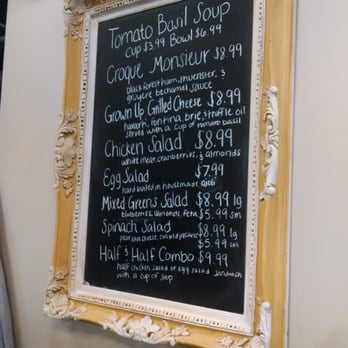 Tomato Basil Soup
cup $3.99 Bowl $6.99
Croque Monsieur $8.99
black forest ham, muenster, &
gruyere bechamel sauce
Grown Up Grilled Cheese $8.99
havarti, fontina, brie, & truffle oil
served with a cup of tomato basil
Chicken Salad $8.99
white meat, cranberries, & almonds
Egg Salad $7.99
hard boiled in housemade aioli
Mixed Greens Salad $8.99 lg
blueberries, almonds, feta $5.99 sm
Spinach Salad $8.99 lg
pear, cheese,
$5.99 sm
Half & Half Combo $9.99
half chicken salad or egg salad sandwich
with a cup of soup